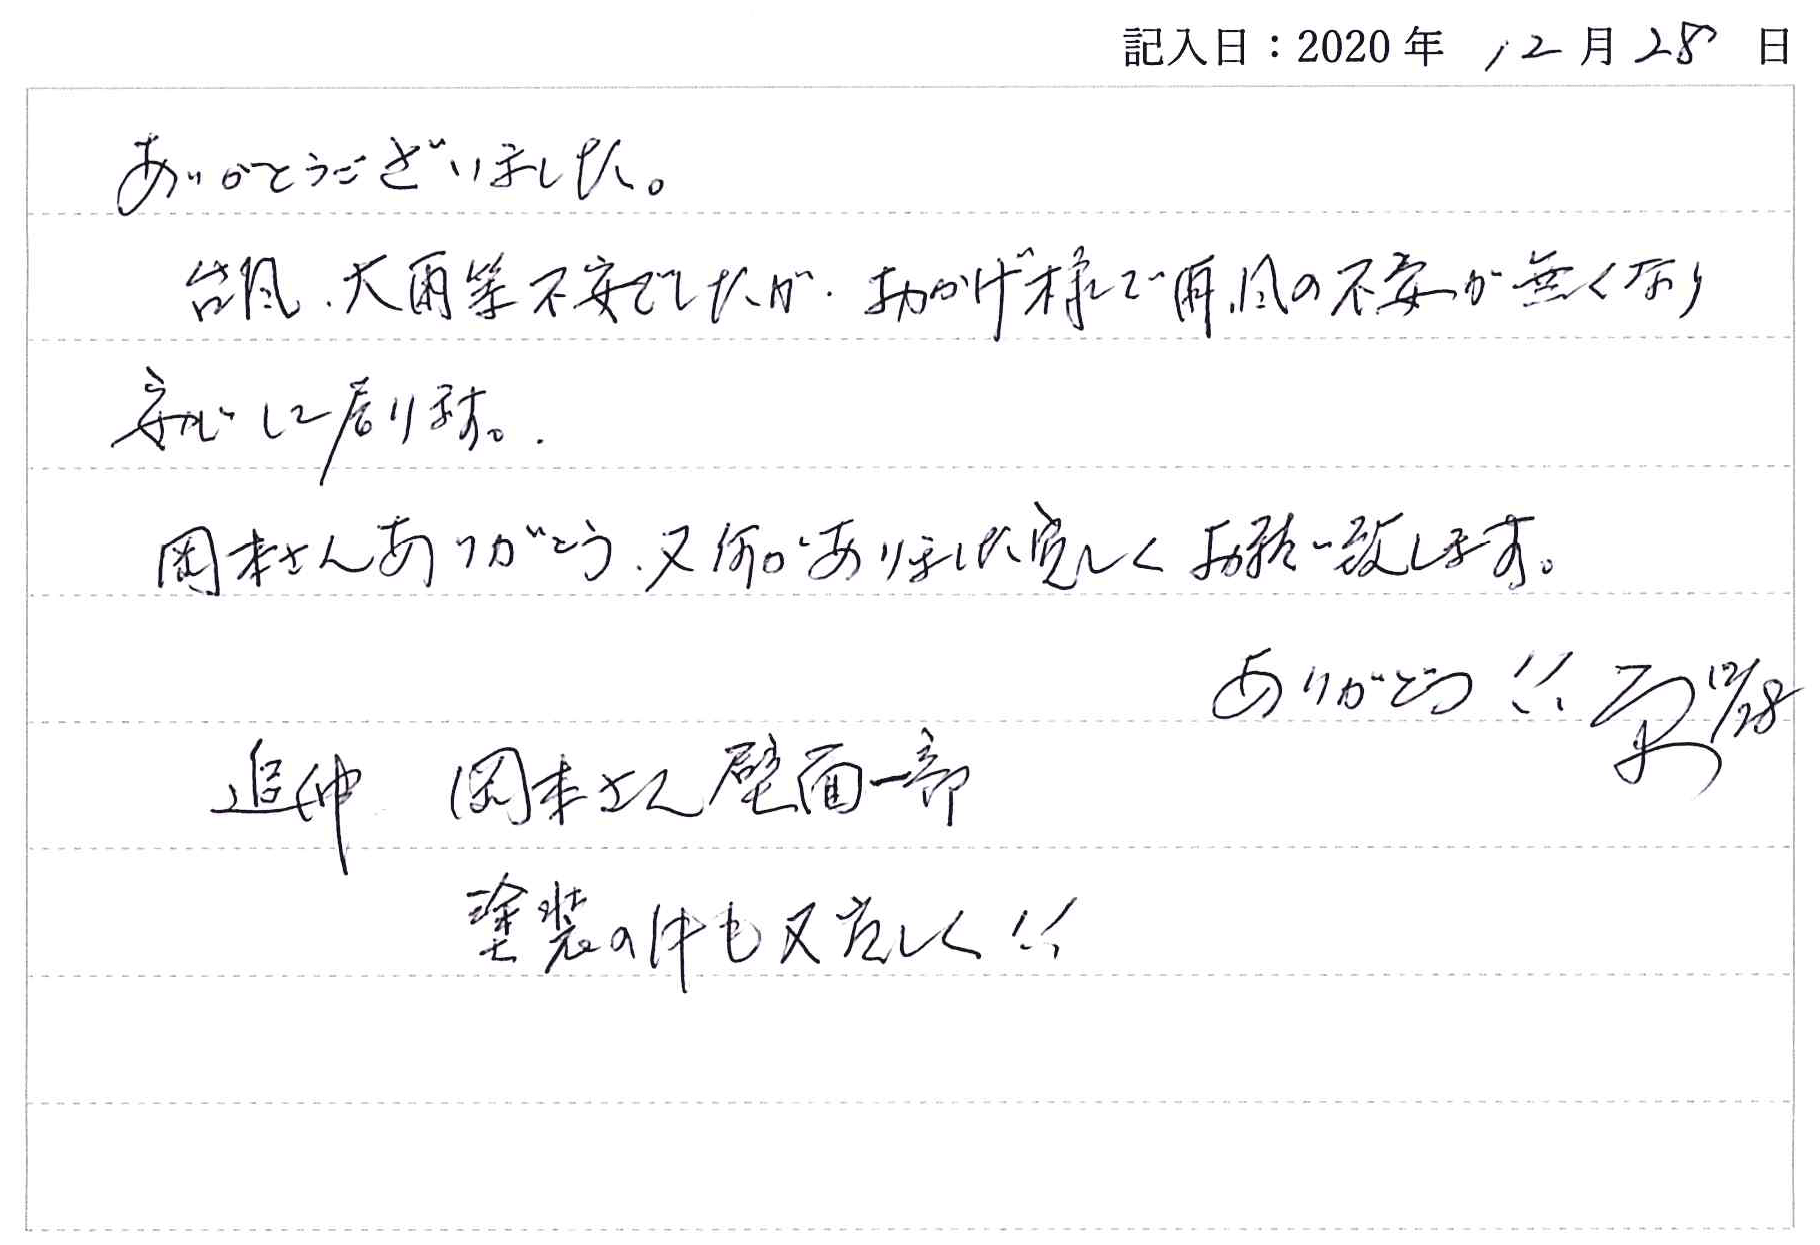 記入日：2020年 12月28日
ありがとうございました。
台風、大雨等不安でしたが、おかげ様で雨、風の不安が無くなり
安心して居ります。
岡本さんありがとう、又何かありました宜しくお願い致します。
ありがとう!! 12/28
追伸 岡本さん壁面一部
塗装の件も又宜しく!!